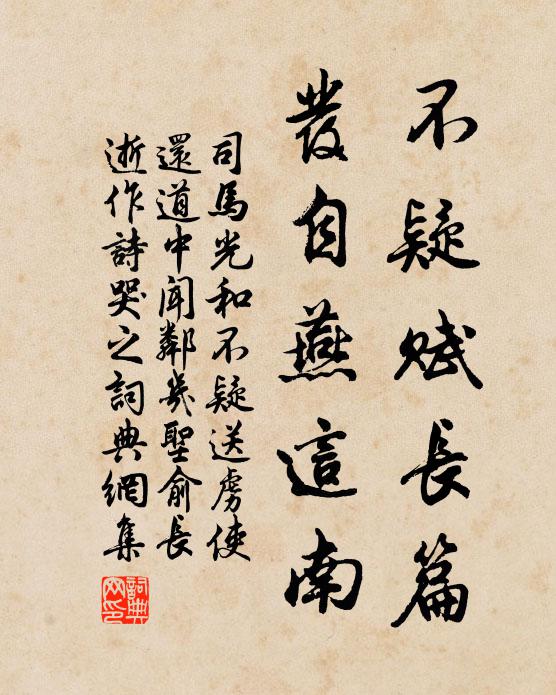 不疑賦長篇
發自燕這南
司馬光和不疑送虜使
還道中聞鄰幾聖俞長
逝作詩哭之詞典網集
詞典網印